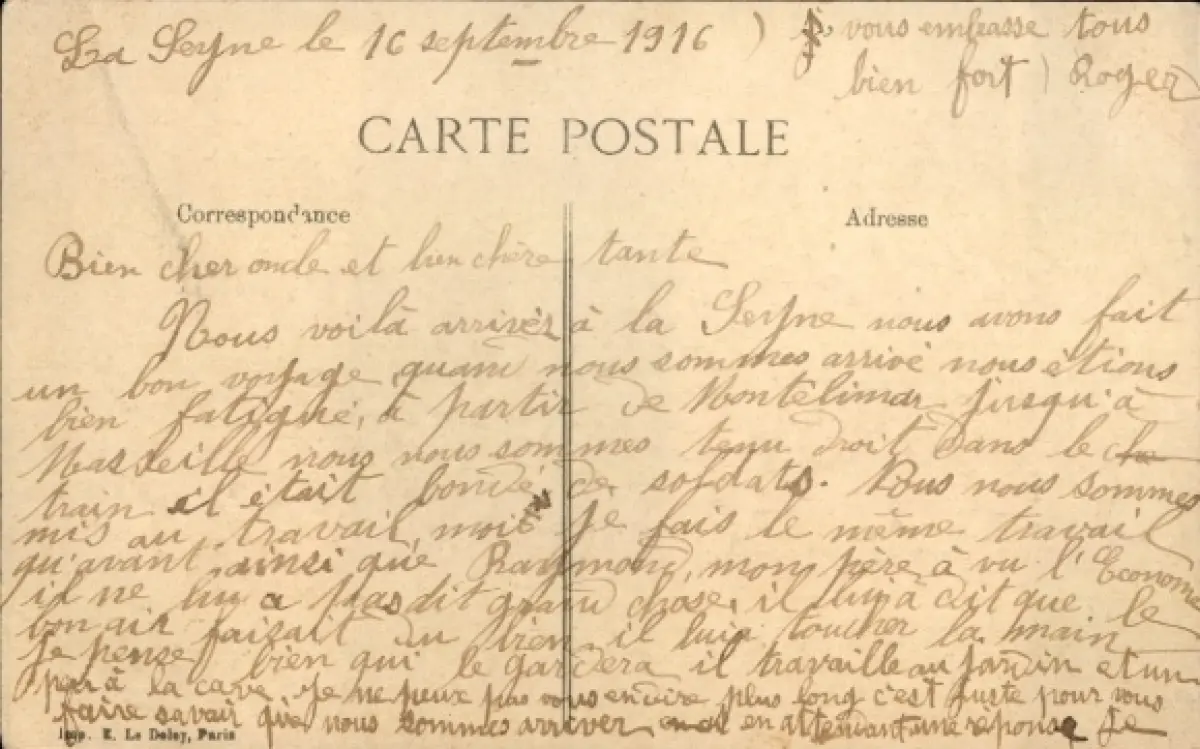 La Seyne le 16 septembre 1916 ) je vous embrasse tous
bien fort ) Roger
CARTE POSTALE
Correspondance
Adresse
Bien cher oncle et bien chère tante
Nous voilà arrivés à la Seyne nous avons fait
un bon voyage, quand nous sommes arrivé nous étions
bien fatigué, à partir de Montélimar jusqu'à
Marseille nous nous sommes tenu droit dans le
train il était bondé de soldats. Nous nous sommes
mis au travail, moi je fais le même travail
qu'avant ainsi que Raymond, mon père à vu l'Econome
il ne lui a pas dit grand chose, il lui à dit que le
bon air faizait du bien, il lui a toucher la main
Je pense bien qui le gardera il travaille au jardin et un
peu à la cave. Je ne peux pas vous enécrire plus long c'est juste pour vous
faire savoir que nous sommes arriver, en attendant une réponse Je
Imp. E. Le Deley, Paris